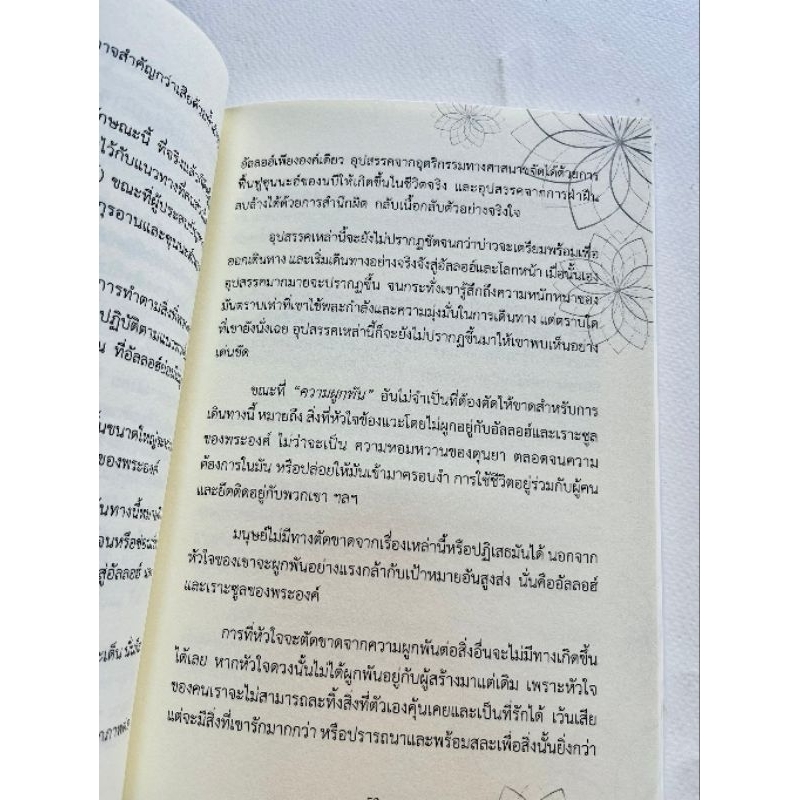 าจสำคัญกว่าเสียด้วยซ้ำ
ักษณะนี้ ที่จริงแล้ว
ไว้กับแนวทางที่
ขณะที่ผู้ประสบ
กุรอานและซุนนะฮ์
การทำตามสิ่งที่
ปฏิบัติตามแนวทาง
น ที่อัลลอฮ์
ขนาดใหญ่
ของพระองค์
ทางนี้
จนหรือ
สู่อัลลอฮ์
ะเด็น นั่น
อัลลอฮ์เพียงองค์เดียว อุปสรรคจากอุตริกรรมทางศาสนาขจัดได้ด้วยการ
ฟื้นฟูซุนนะฮ์ของนบีให้เกิดขึ้นในชีวิตจริง และอุปสรรคจากการฝ่าฝืน
ลบล้างได้ด้วยการสำนึกผิด กลับเนื้อกลับตัวอย่างจริงใจ
อุปสรรคเหล่านี้จะยังไม่ปรากฏชัดจนกว่าบ่าวจะเตรียมพร้อมเพื่อ
ออกเดินทาง และเริ่มเดินทางอย่างจริงจังสู่อัลลอฮ์และโลกหน้า เมื่อนั้นเอง
อุปสรรคมากมายจะปรากฏขึ้น จนกระทั่งเขารู้สึกถึงความหนักหน่วงของ
มันตราบเท่าที่เขาใช้พละกำลังและความมุ่งมั่นในการเดินทาง แต่ตราบใด
ที่เขายังนั่งเฉย อุปสรรคเหล่านี้ก็จะยังไม่ปรากฏขึ้นมาให้เขาพบเห็นอย่าง
เด่นชัด
ขณะที่ “ความผูกพัน” อันไม่จำเป็นที่ต้องตัดให้ขาดสำหรับการ
เดินทางนี้ หมายถึง สิ่งที่หัวใจข้องแวะโดยไม่ผูกอยู่กับอัลลอฮ์และเราะซูล
ของพระองค์ ไม่ว่าจะเป็น ความหอมหวานของดุนยา ตลอดจนความ
ต้องการในมัน หรือปล่อยให้มันเข้ามาครอบงำ การใช้ชีวิตอยู่ร่วมกับผู้คน
และยึดติดอยู่กับพวกเขา ฯลฯ
มนุษย์ไม่มีทางตัดขาดจากเรื่องเหล่านี้หรือปฏิเสธมันได้ นอกจาก
หัวใจของเขาจะผูกพันอย่างแรงกล้ากับเป้าหมายอันสูงส่ง นั่นคืออัลลอฮ์
และเราะซูลของพระองค์
การที่หัวใจจะตัดขาดจากความผูกพันต่อสิ่งอื่นจะไม่มีทางเกิดขึ้น
ได้เลย หากหัวใจดวงนั้นไม่ได้ผูกพันอยู่กับผู้สร้างมาแต่เดิม เพราะหัวใจ
ของคนเราจะไม่สามารถละทิ้งสิ่งที่ตัวเองคุ้นเคยและเป็นที่รักได้ เว้นเสีย
แต่จะมีสิ่งที่เขารักมากกว่า หรือปรารถนาและพร้อมสละเพื่อสิ่งนั้นยิ่งกว่า